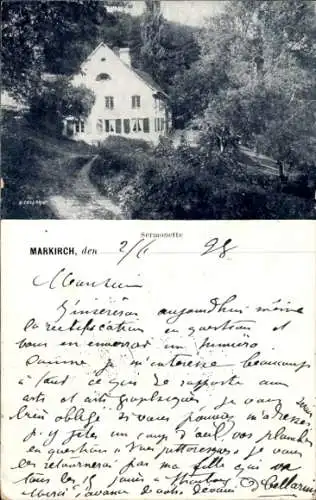 Sermonette
MARKIRCH, den 2/6 98
Monsieur
J'insérerai aujourd'hui même
la rectification en question et
vous en enverrai un numéro
comme je m'intéresse beaucoup
à tout ce qui se rapporte aux
arts et arts graphiques, je vous
bien obligé si vous pouvez m'adresser
p. y jeter un coup d'œil, vos planches
en question « Vues pittoresques » je vous
les retournerai par ma fille qui va
tous les 15 jours à
Merci d'avance